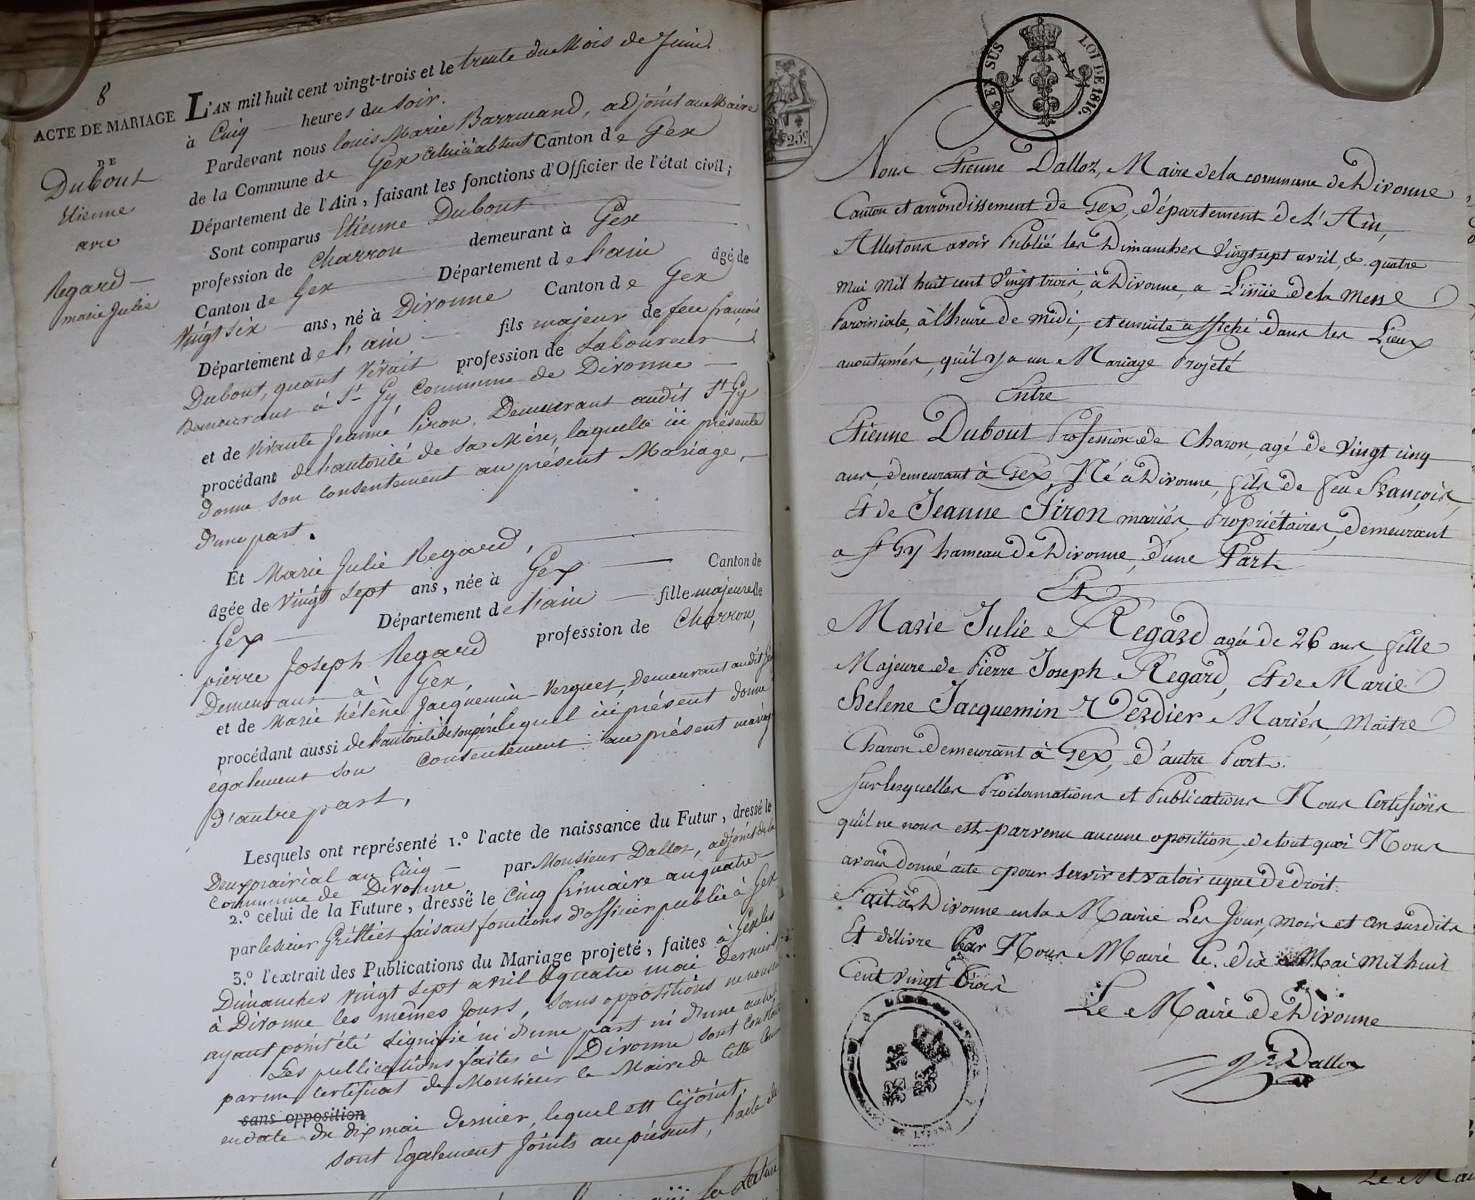 8
ACTE DE MARIAGE
DE
Dubout
Etienne
avec
Regard
marie Julie
L'AN mil huit cent vingt-trois et le trente du Mois de Juin
à Cinq heures du soir.
Pardevant nous Louis Marie Barruand, adjoint au Maire
de la Commune de Gex celui ci absent Canton de Gex
Département de l'Ain, faisant les fonctions d'Officier de l'état civil;
Sont comparus Etienne Dubout
profession de Charron demeurant à Gex
Canton de Gex Département de l'ain âgé de
Vingt six ans, né à Divonne Canton de Gex
Département de l'ain fils majeur de feu françois
Dubout, quant Vivait profession de Laboureur
Demeurant à St Gy, Commune de Divonne
et de Vivante Jeanne Piron, Demeurant audit St Gy
procédant de l'autorité de sa Mère, laquelle ici présente
donne son consentement au présent Mariage,
d'une part.
Et Marie Julie Regard,
âgée de Vingt sept ans, née à Gex Canton de
Gex Département de l'ain fille majeure de
pierre Joseph Regard profession de Charron,
Demeurant à Gex
et de Marie hélène Jacquemin Verguet, Demeurant audit Gex
procédant aussi de l'autorité de son père lequel ici présent donne
également son Consentement au présent mariage
D'autre part,
Lesquels ont représenté 1.º l'acte de naissance du Futur, dressé le
Deux prairial an Cinq par Monsieur Dalloz, adjoint de la
Commune de Divonne
2.º celui de la Future, dressé le Cinq frimaire an quatre
par le sieur faisant fonctions d'officier public à Gex
3.º l'extrait des Publications du Mariage projeté, faites à Gex les
Dimanches Vingt sept avril & quatre mai Derniers
à Divonne les mêmes Jours, sans oppositions ne nous
ayant point été Signifié ni d'une part ni d'une autre
Les publications faites à Divonne sont constatées
par un Certificat de Monsieur le Maire de cette
sans opposition
en date du dix mai dernier, lequel est cijoint,
sont également Joints au présent, l'acte de
25c
EN SUS
LOI DE 1816.
Nous Etienne Dalloz, Maire de la commune de Divonne
Canton et arrondissement de Gex, département de L'Ain,
Attestons avoir Publié les Dimanches Vingt sept avril, & quatre
mai Mil huit cent Vingt trois, à Divonne, a L'issüe de la Messe
Paroissiale, à l'heure de midi, et ensuite affiché dans les Lieux
acoutumés, qu'il y a un Mariage Projeté
Entre
Etienne Dubout Profession de Charon, agé de Vingt cinq
ans, demeurant à Gex, Né à Divonne, fils de feu François,
Et de Jeanne Piron mariés, Propriétaires, demeurant
a St Gy hameau de Divonne, d'une Part
Et
Marie Julie Regard agée de 26 ans fille
Majeure de Pierre Joseph Regard, Et de Marie
Helene Jacquemin Verdier Mariés, Maitre
Charon demeurant à Gex, d'autre Part.
Sur lesquelles Proclamations et Publications Nous Certifions
qu'il ne nous est parvenu aucune oposition, de tout quoi Nous
avons donné acte pour servir et valoir ce que de droit.
Fait à Divonne en la Mairie Les Jour, mois et an susdits
Et délivré Par Nous Maire le dix Mai Mil huit
Cent Vingt trois
Le Maire de Divonne
Dalloz